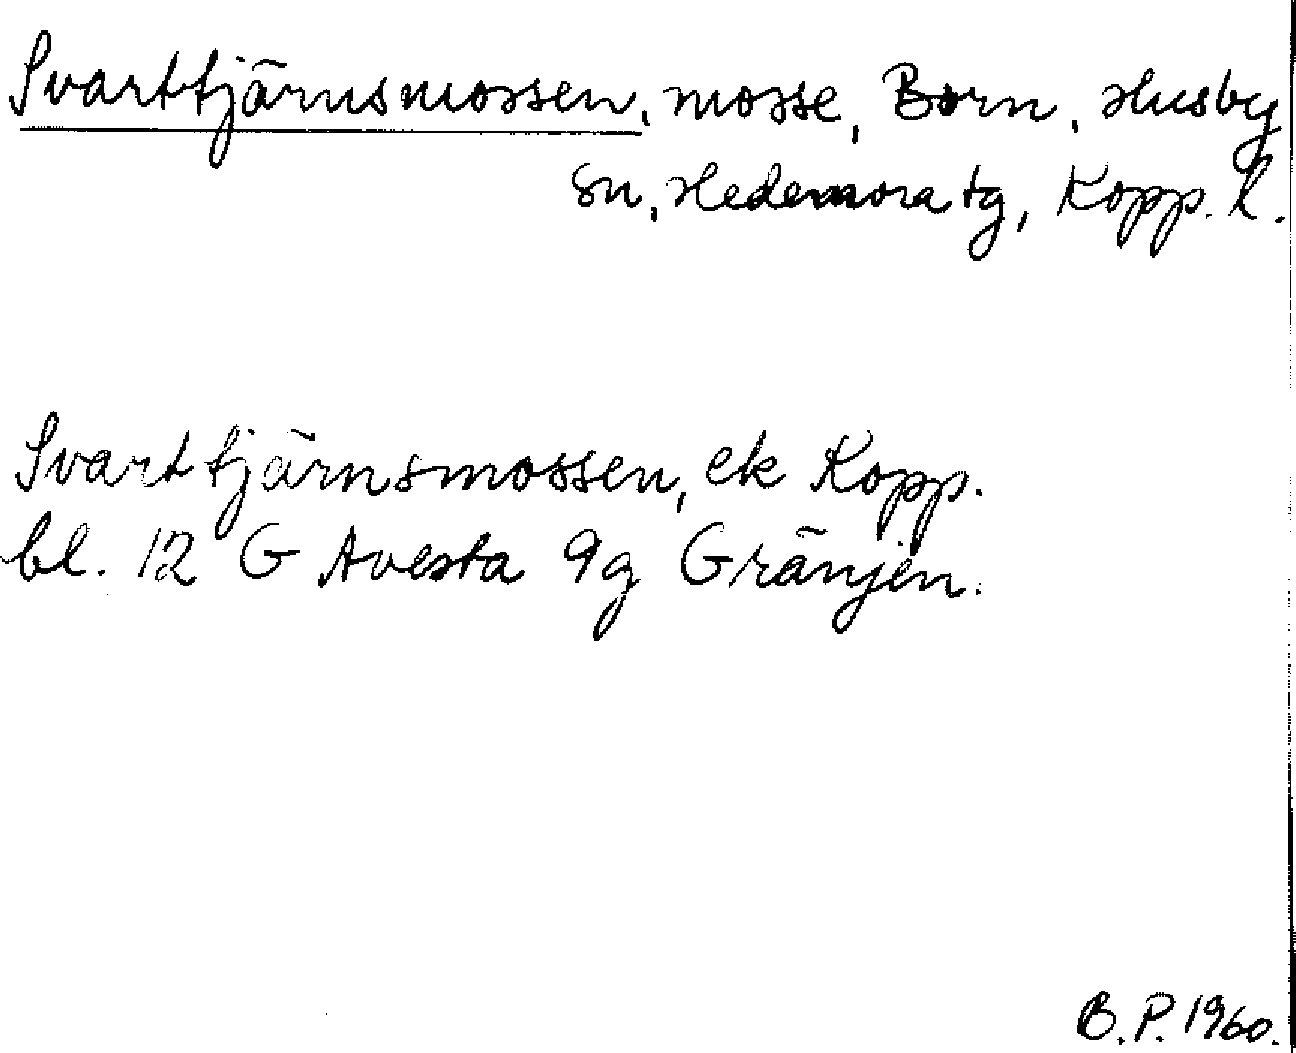 Svarttjärnsmossen, mosse, Born, Husby
sn, Hedemora tg, Kopp. l.
Svarttjärnsmossen, ek Kopp.
bl. 12 G Avesta 9g Gränjen.
B.P. 1960.